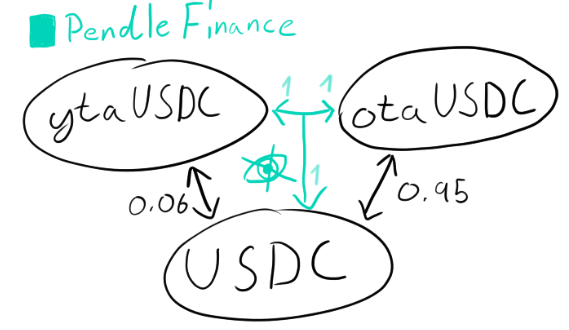 Pendle Finance
1 1
ytaUSDC
otaUSDC
1
0.06
0.95
USDC